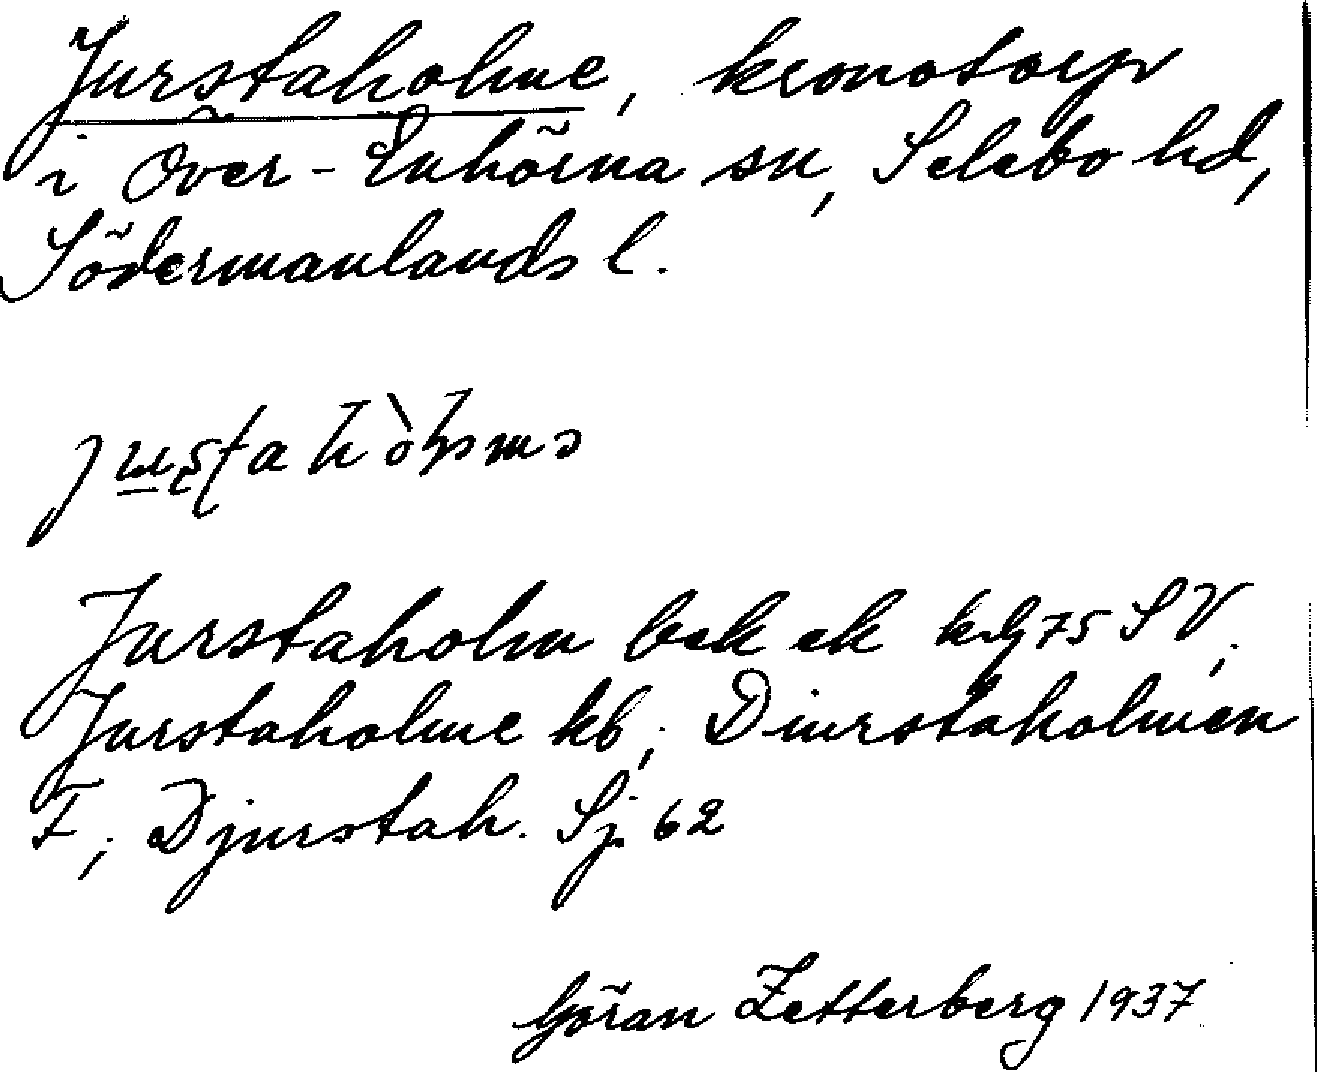 Jurstaholme, kronotorp
i Över-Enhörna sn, Selebo hd,
Södermanlands l.
Jurstaholm bek ek kbg 75 SV;
Jurstaholme kb; Diurstaholmen
F; Djurstah. Sj. 62
Göran Zetterberg 1937